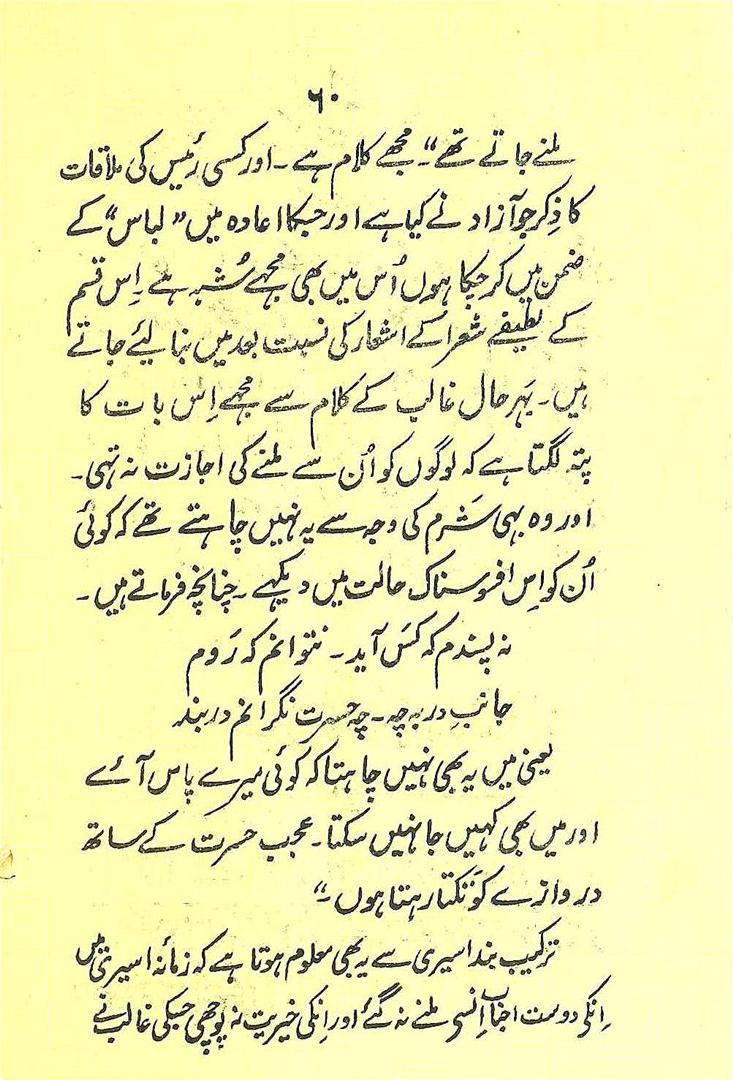 ۶۰
ملنے جاتے تھے"۔ مجھے کلام ہے۔ اور کسی رئیس کی ملاقات
کا ذِکر جو آزاد نے کیا ہے اور جسکا اعادہ میں "لباس" کے
ضمن میں کر چکا ہوں اُس میں بھی مجھے شُبہ ہے اِس قسم
کے لطیفے شعرا کے اشعار کی نسبت بعد میں بنا لیئے جاتے
ہیں۔ بَہر حال غالب کے کلام سے مجھے اِس بات کا
پتہ لگتا ہے کہ لوگوں کو اُن سے ملنے کی اجازت نہ تہی۔
اور وہ بہی شَرم کی وجہ سے یہ نہیں چاہتے تھے کہ کوئی
اُن کو اِس افسوسناک حالت میں دیکہے۔ چنانچہ فرماتے ہیں۔
نہ پسندم کہ کَس آید۔ نتوانم کہ رَوم
جانبِ در بہ چہ۔ چہ حسرت نگرانم در بند
یعنی میں یہ بھی نہیں چاہتا کہ کوئی میرے پاس آئے
اور میں بھی کہیں جا نہیں سکتا۔ عجب حسرت کے ساتھ
دروازے کو تکتا رہتا ہوں۔"
ترکیب بند اسیری سے یہ بھی معلوم ہوتا ہے کہ زمانہ اسیری میں
اِنکی دوست احباب اِنسی ملنے نہ گئے اور اِنکی خیریت نہ پوچھی جسکی غالب نے